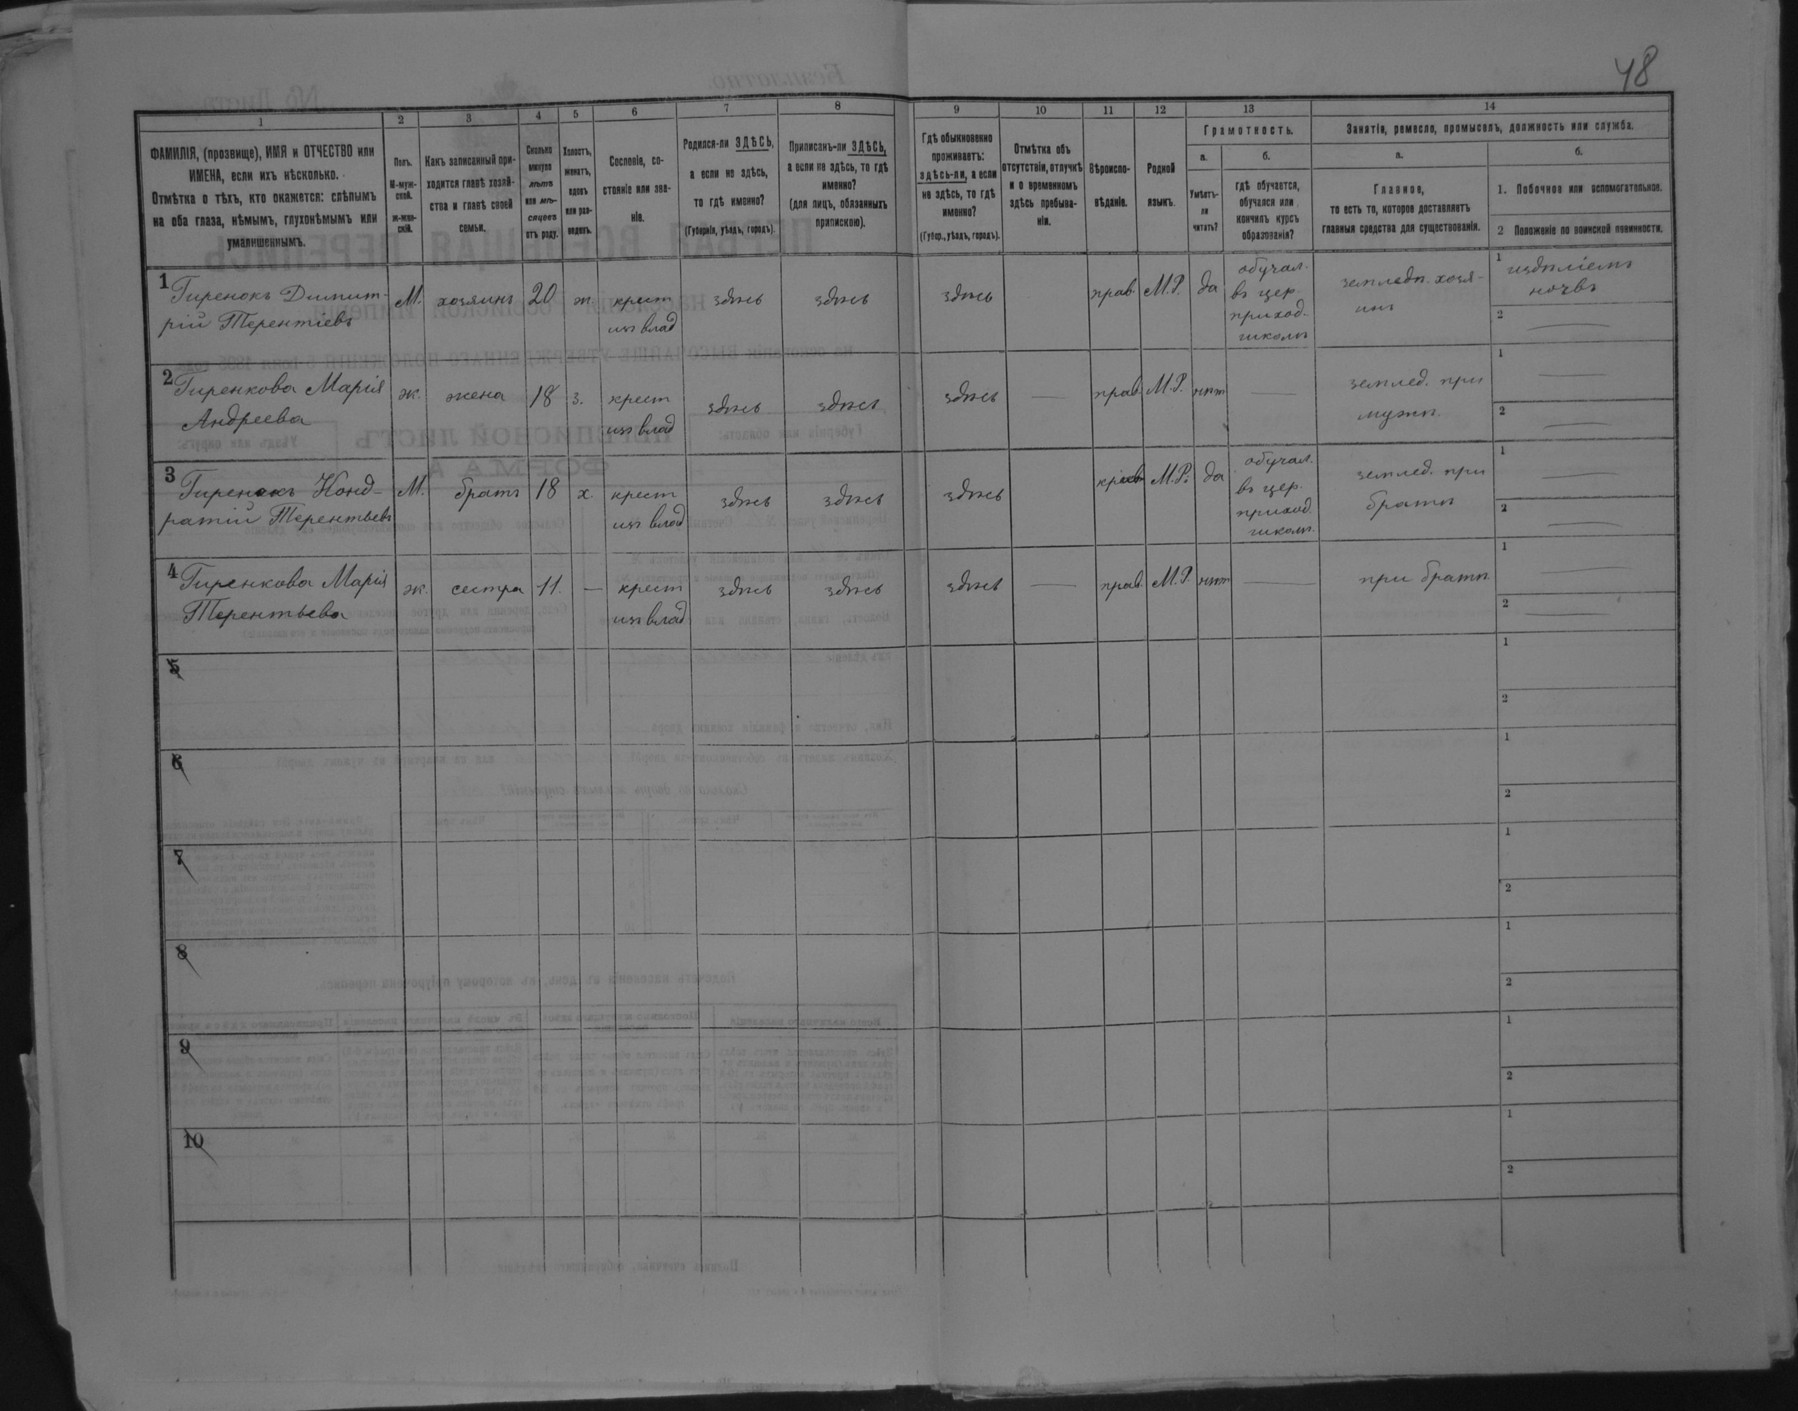 48
1 2 3 4 5 6 7 8 9 10 11 12 13 14
ФАМИЛІЯ, (прозвище), ИМЯ и ОТЧЕСТВО или
ИМЕНА, если ихъ нѣсколько.
Отмѣтка о тѣхъ, кто окажется: слѣпымъ
на оба глаза, нѣмымъ, глухонѣмымъ или
умалишеннымъ.
Полъ.
М-муж-
ской.
ж-жен-
скій.
Какъ записанный при-
ходится главѣ хозяй-
ства и главѣ своей
семьи.
Сколько
минуло
лѣтъ
или мѣ-
сяцевъ
отъ роду.
Холостъ,
женатъ,
вдовъ
или раз-
веденъ.
Сословіе, со-
стояніе или зва-
ніе.
Родился-ли ЗДѢСЬ,
а если не здѣсь,
то гдѣ именно?
(Губернія, уѣздъ, городъ).
Приписанъ-ли ЗДѢСЬ,
а если не здѣсь, то гдѣ
именно?
(для лицъ, обязанныхъ
припискою).
Гдѣ обыкновенно
проживаетъ:
здѣсь-ли, а если
не здѣсь, то гдѣ
именно?
(Губер., уѣздъ, городъ).
Отмѣтка объ
отсутствіи, отлучкѣ
и о временномъ
здѣсь пребыва-
ніи.
Вѣроиспо-
вѣданіе.
Родной
языкъ.
Грамотность.
а.
Умѣетъ-
ли
читать?
б.
гдѣ обучается,
обучался или
кончилъ курсъ
образованія?
Занятія, ремесло, промыселъ, должность или служба.
а.
Главное,
то есть то, которое доставляетъ
главныя средства для существованія.
б.
1. Побочное или вспомогательное.
2 Положеніе по воинской повинности.
1 Гиренокъ Димит-
рій Терентіевъ
М. хозяинъ 20 ж крест
из влад
здѣсь здѣсь здѣсь прав. М.Р. да
обучал.
въ цер.
приход.
школѣ
земледѣл. хозя-
инъ
1
2
2 Гиренкова Марія
Андреева
ж. жена 18 з. крест
из влад
здѣсь здѣсь здѣсь — прав. М.Р. нѣт —
землед. при
мужѣ
1
2
3 Гиренокъ Конд-
ратій Терентьевъ
М. братъ 18 х. крест
из влад
здѣсь здѣсь здѣсь М.Р. да
обучал.
въ цер.
приход.
школѣ
землед. при
братѣ
1
2
4 Гиренкова Марія
Терентьева
ж. сестра 11. — крест
из влад
здѣсь здѣсь здѣсь — прав. М.Р. нѣт —
при братѣ
1
2
5
1
2
6
1
2
7
1
2
8
1
2
9
1
2
10
1
2